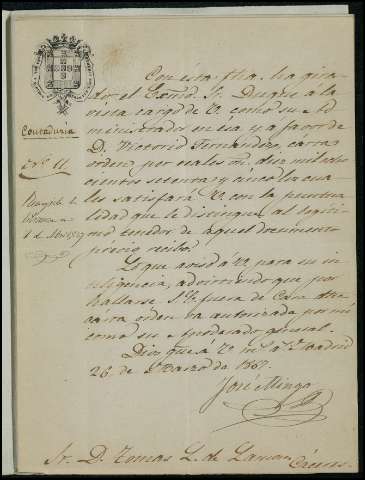 Contaduría
Nº 11
Con esta fha. ha gira-
do el Excmo. Sr. Duque á la
vista cargo de V. como su Ad-
ministrador en esa y á favor de
D. Victorio Fernandez, carta
orden por reales vn. diez mil dos-
cientos setenta y cinco la cua-
les satisfará V. con la puntua-
lidad que le distingue al legíti-
mo tenedor de aquel documento
prévio recibo.
Lo que aviso á V. para su in-
teligencia, advirtiendo que por
hallarse S. E. fuera de Casa dha.
carta orden va autorizada por mí
como su Apoderado general.
Dios gue. á V. ms. as. Madrid
26 de Marzo de 1867.
José Minga
Sr. D. Tomas L. de